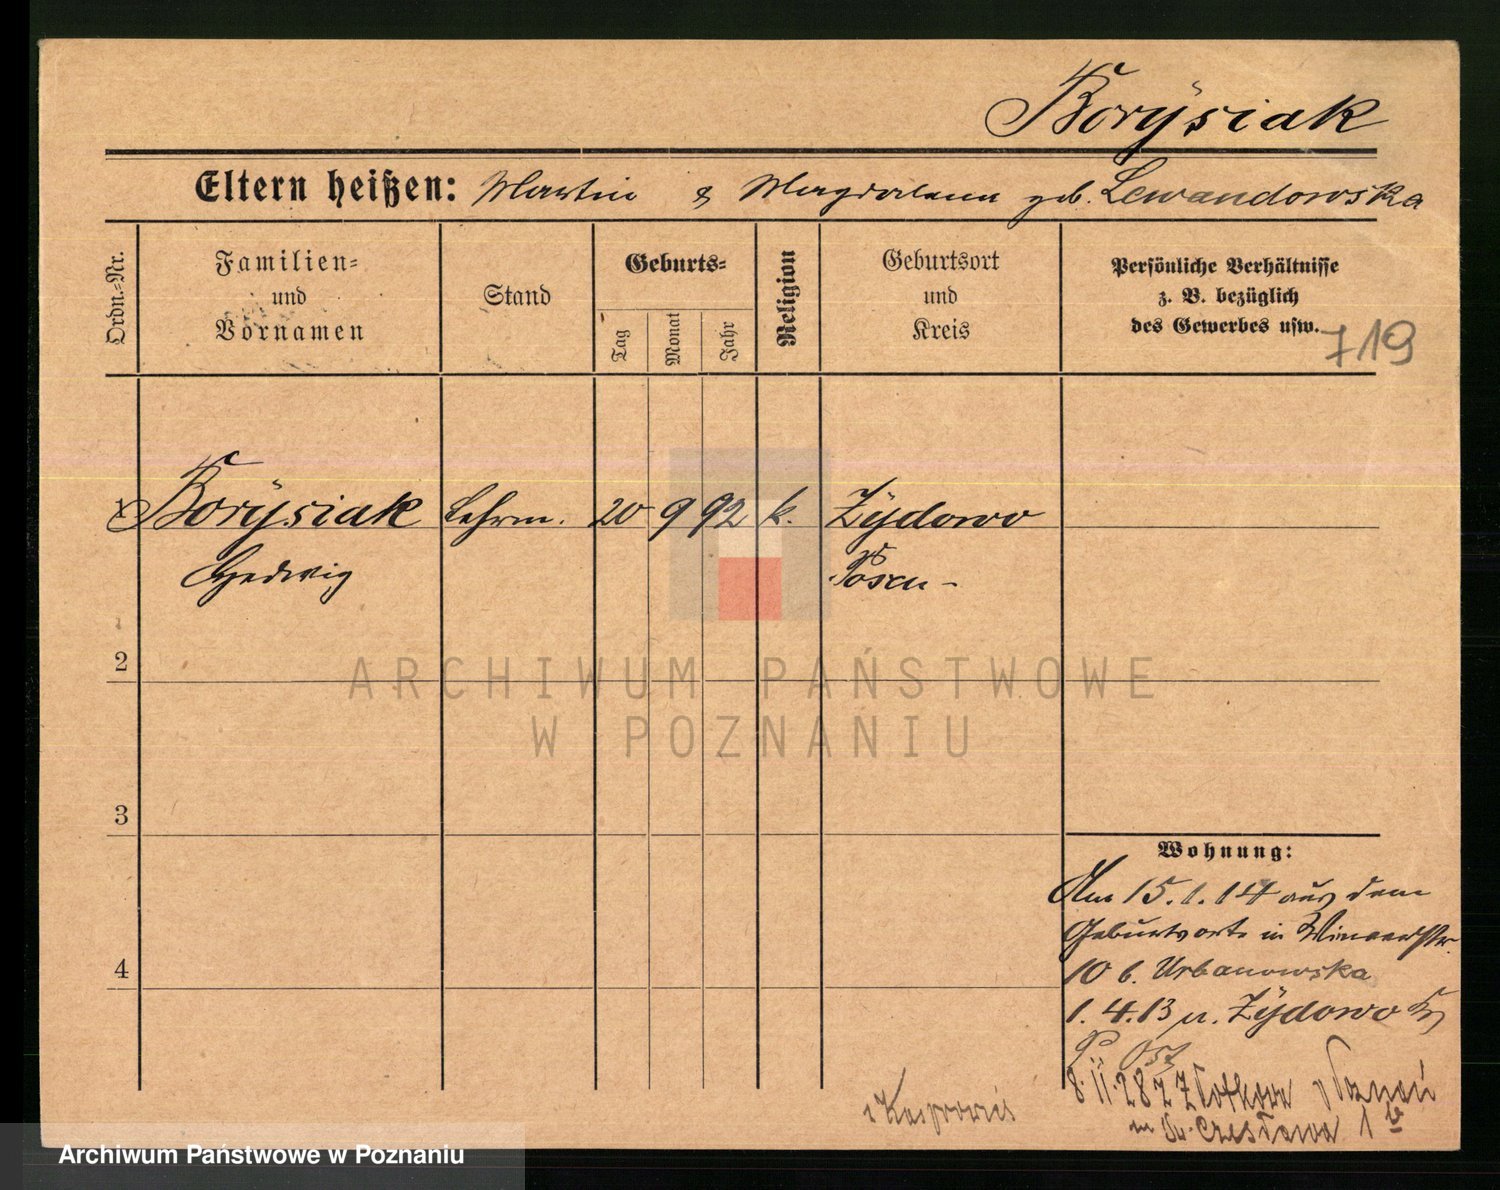 Borÿsiak
Eltern heißen: Martin & Magdalena geb. Lewandowska
Ordn.-Nr.
Familien-
und
Vornamen
Stand
Geburts-
Tag
Monat
Jahr
Religion
Geburtsort
und
Kreis
Persönliche Verhältnisse
z. B. bezüglich
des Gewerbes usw.
719
1 Borÿsiak Lehrm. 20 9 92 k. Zÿdowo
Hedwig Posen-
2
ARCHIWUM PAŃSTWOWE
W POZNANIU
3
4
Wohnung:
Am 15.1.14 aus dem
Geburtsorte in
10 b. Urbanowska
1.4.13 n. Zÿdowo
Ost
8.II.28 z Poznań
Św. Czesława 1
Archiwum Państwowe w Poznaniu